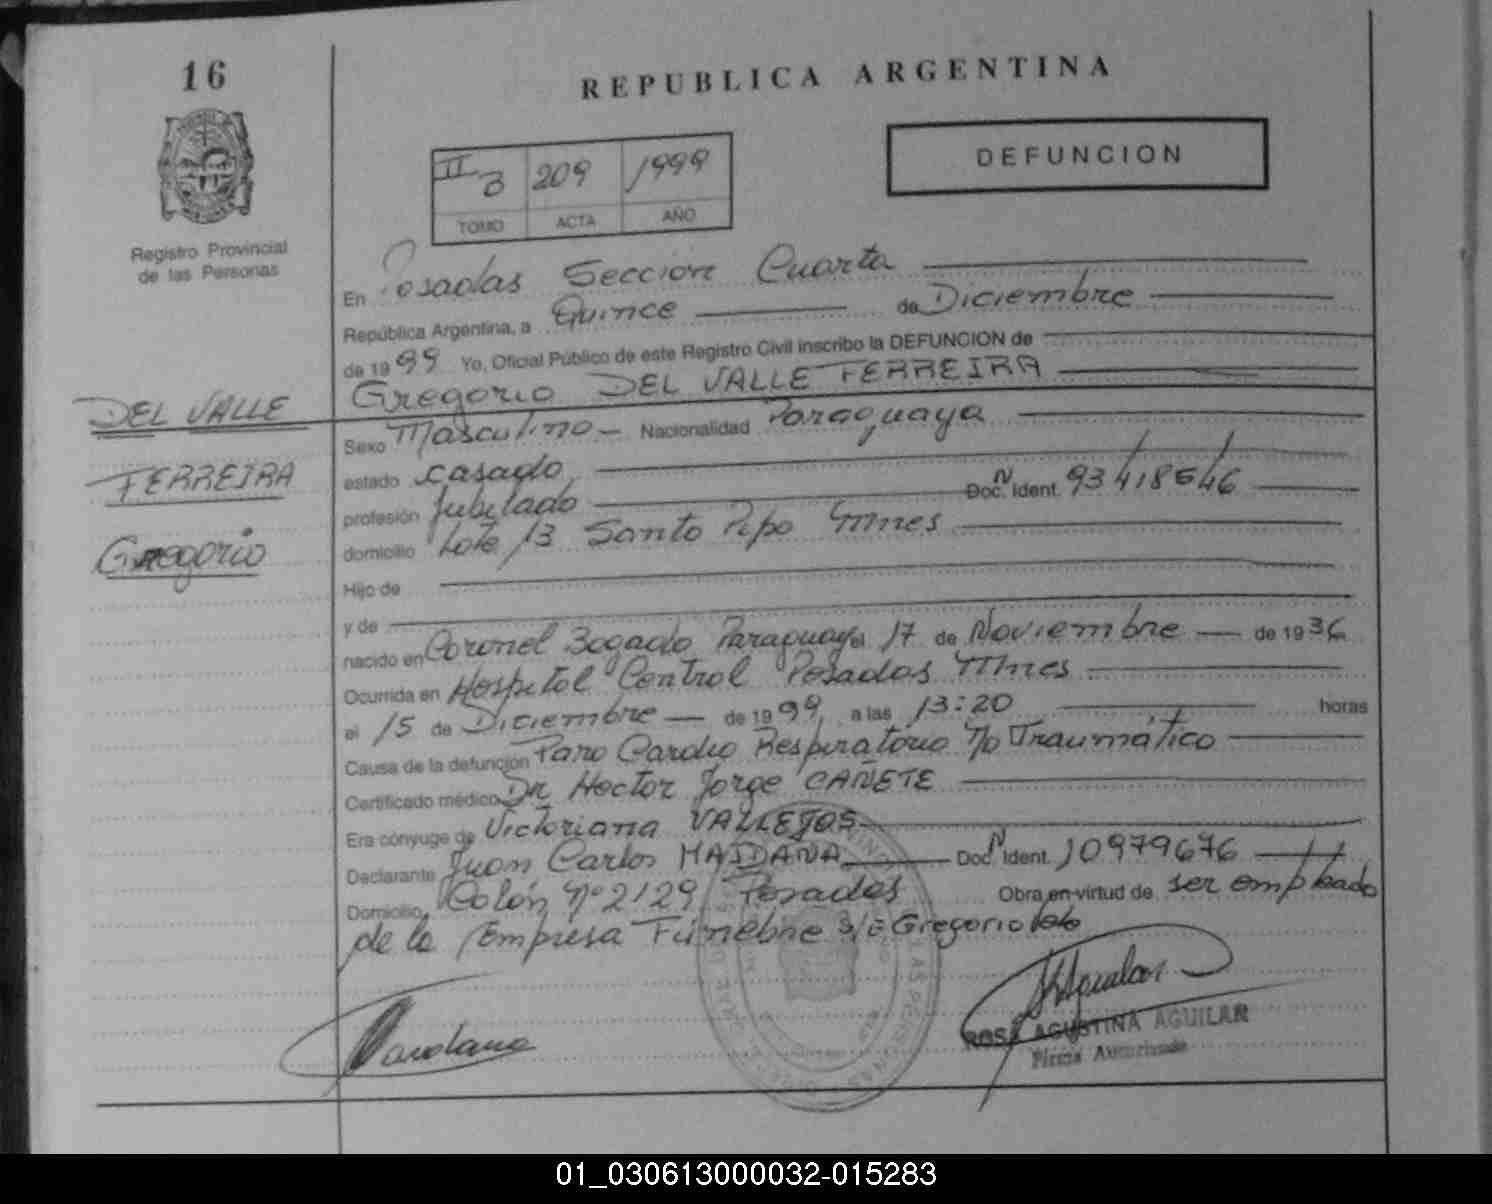 16
REPUBLICA ARGENTINA
DEFUNCION
II 3 209 1999
TOMO ACTA AÑO
Registro Provincial
de las Personas
En Posadas Sección Cuarta
República Argentina, a Quince de Diciembre
de 1999 Yo, Oficial Público de este Registro Civil inscribo la DEFUNCION de
Gregorio DEL VALLE FERREIRA
DEL VALLE
FERREIRA
Gregorio
Sexo Masculino Nacionalidad Paraguaya
estado casado
profesión Jubilado Doc. Ident. N
domicilio Lote 13 Santo Pipo Mnes
Hijo de
y de
nacido en Coronel Bogado Paraguay el 17 de Noviembre de 1936
Ocurrida en Hospital Central Posadas Mnes
el 15 de Diciembre de 1999, a las 13:20 horas
Causa de la defunción Paro Cardio Respiratorio No Traumático
Certificado médico Dr Hector Jorge CAÑETE
Era cónyuge de Victoriana VALLEJOS
Declarante Juan Carlos MAIDANA Doc. N Ident. 10979676
Domicilio Colón Nº 2129 Posadas Obra en virtud de ser empleado
de la Empresa Fúnebre S/E Gregorio
ROSA AGUSTINA AGUILAR
Firma Autorizada
01_030613000032-015283